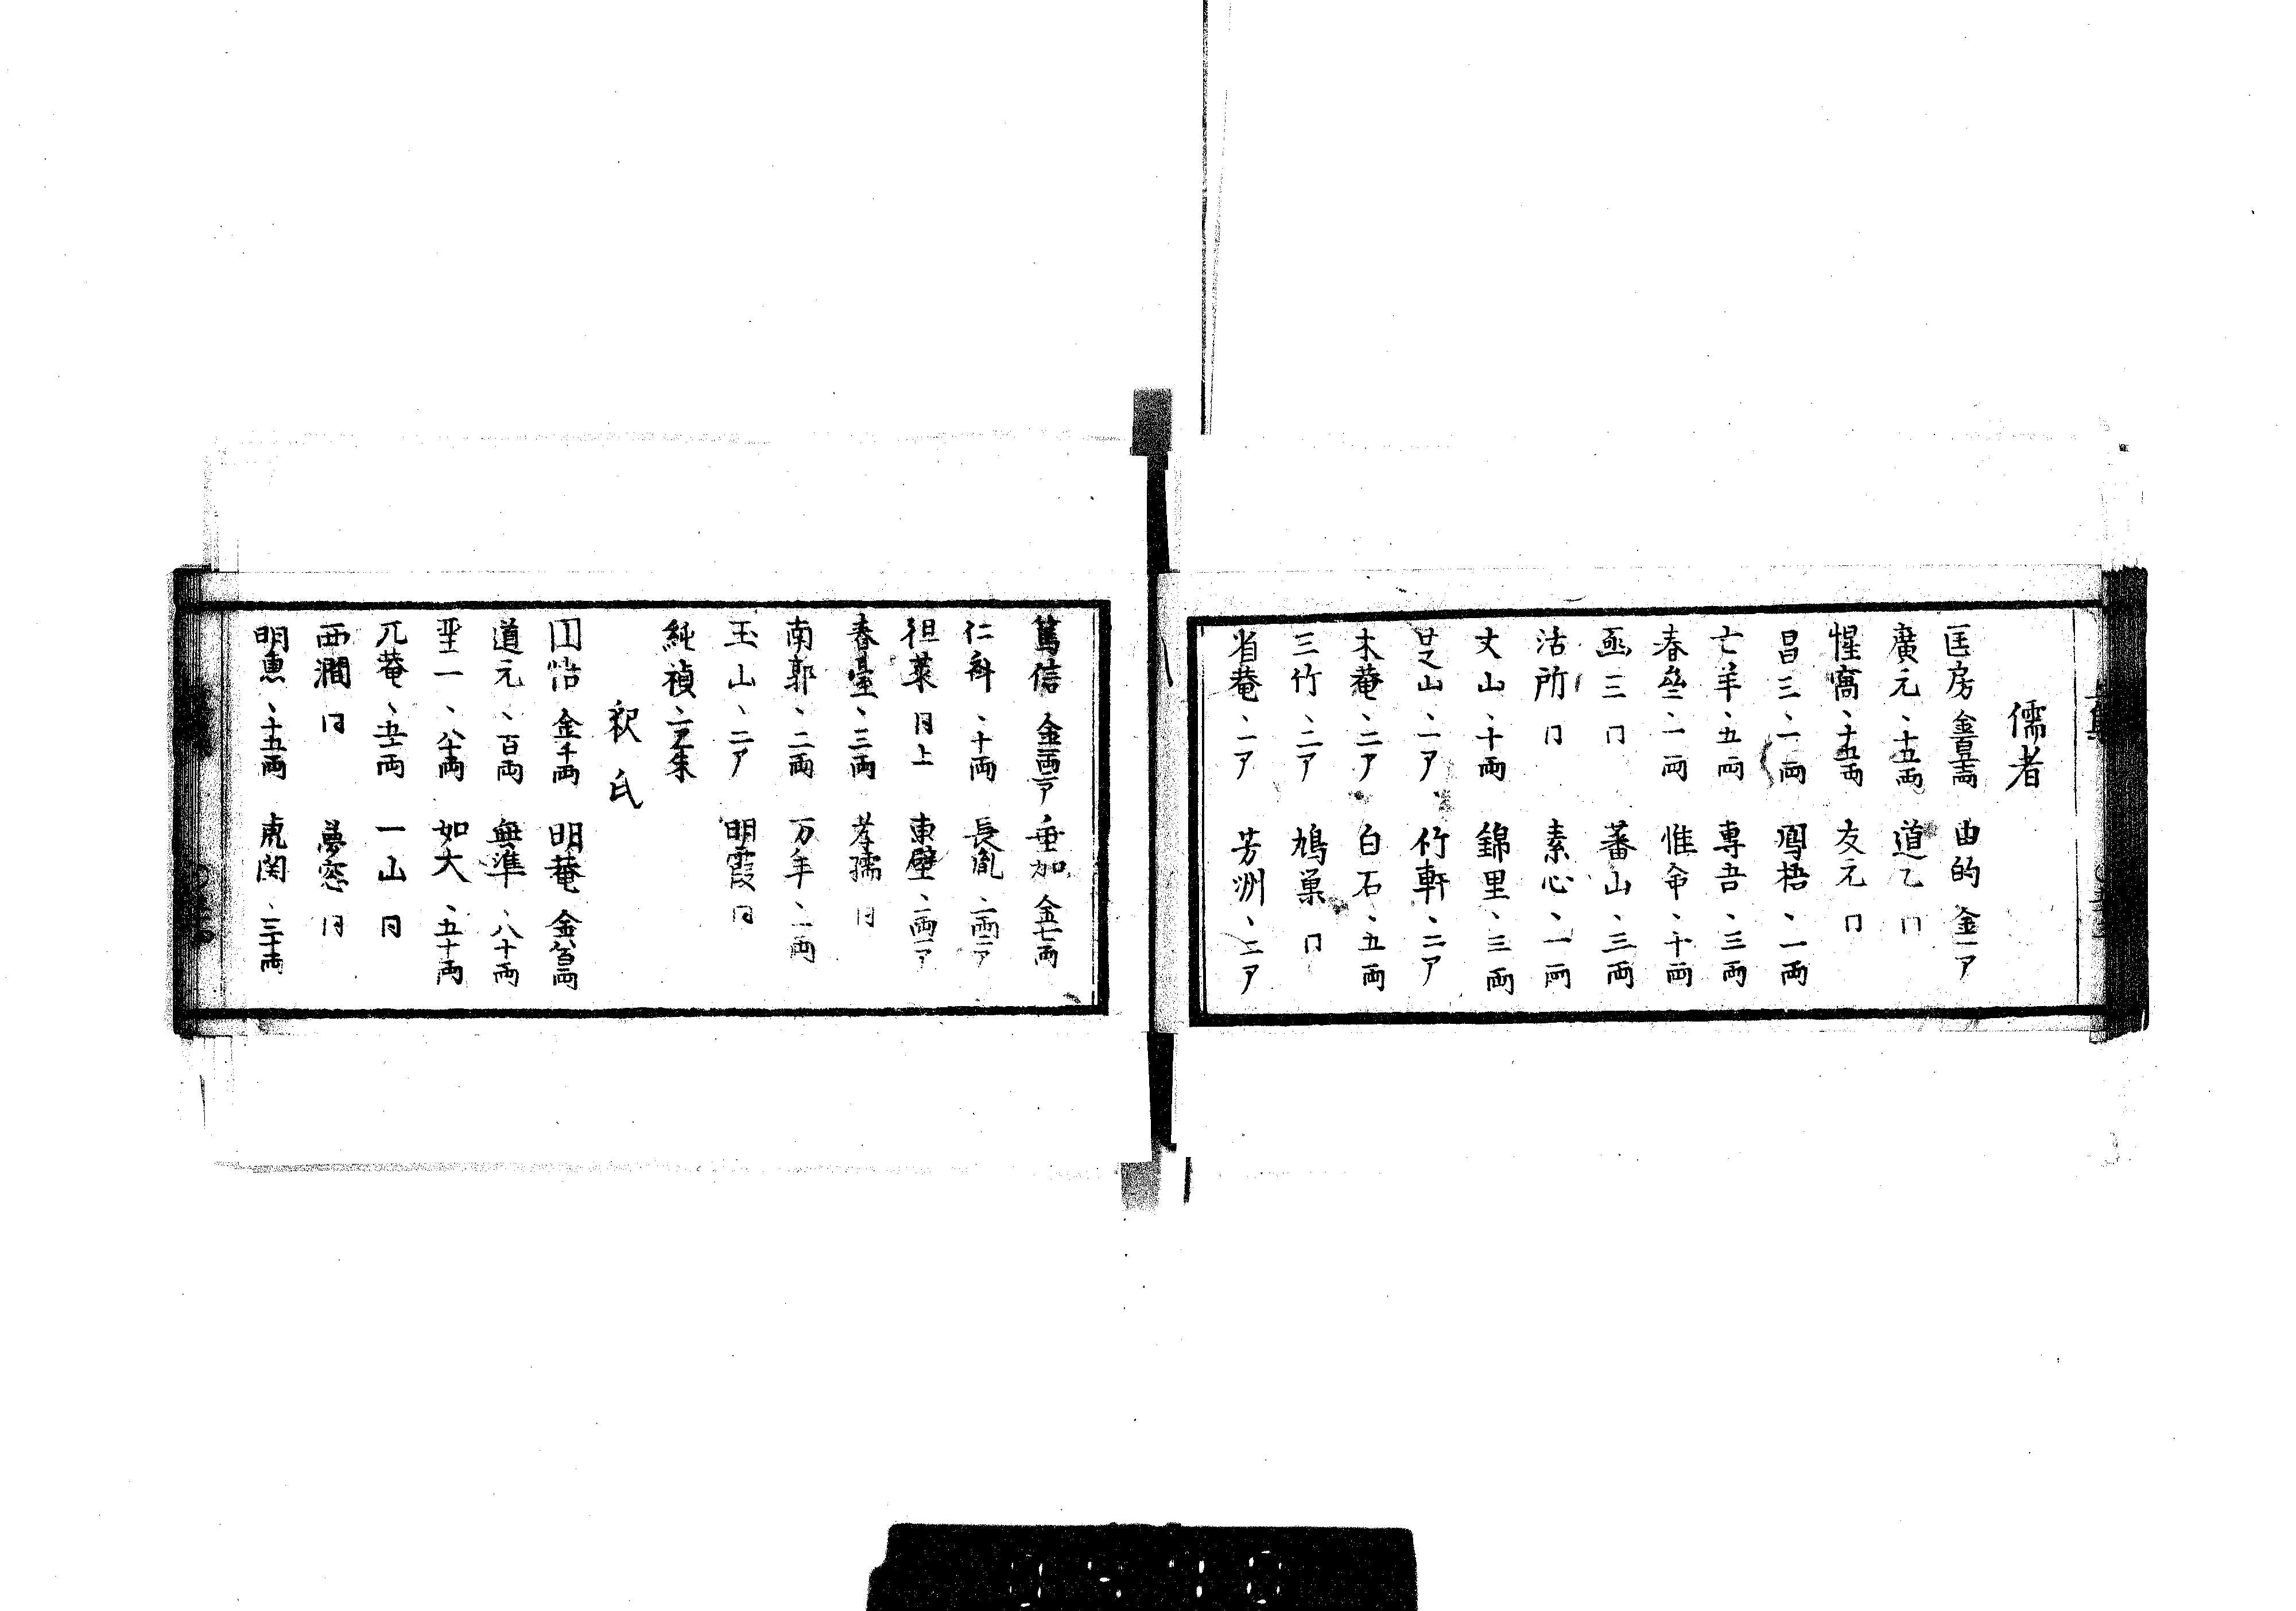 儒者
匡房 金百両 由的 金一ア
廣元 、十五両 道乙 冂
惺窩 、十五両 友元 冂
昌三 、一両 鳳梧 、一両
亡羊 、五両 専吾 、三両
春斎 、一両 惟命 、十両
亟三 冂 蕃山 、三両
活所 冂 素心 、一両
丈山 、十両 錦里 、三両
芝山 、一ア 竹軒 、二ア
木菴 、二ア 白石 、五両
三竹 、二ア 鳩巣 冂
省菴 、一ア 芳洲 、二ア
篤信 金一両二ア 垂加 金七両
仁斎 、十両 長胤 、一両二ア
徂莱 冃上 東壁 、一両一ア
春臺 、三両 孝孺 冃
南郭 、二両 万年 、一両
玉山 、二ア 明霞 冃
純禎 、二ア二朱
釈氏
明菴 金八百両
道元 、百両 無準 、八十両
聖一 、八十両 如大 、五十両
兀菴 、五十両 一山 冃
西澗 冃 夢窓 冃
明恵 、十五両 虎関 、三十両